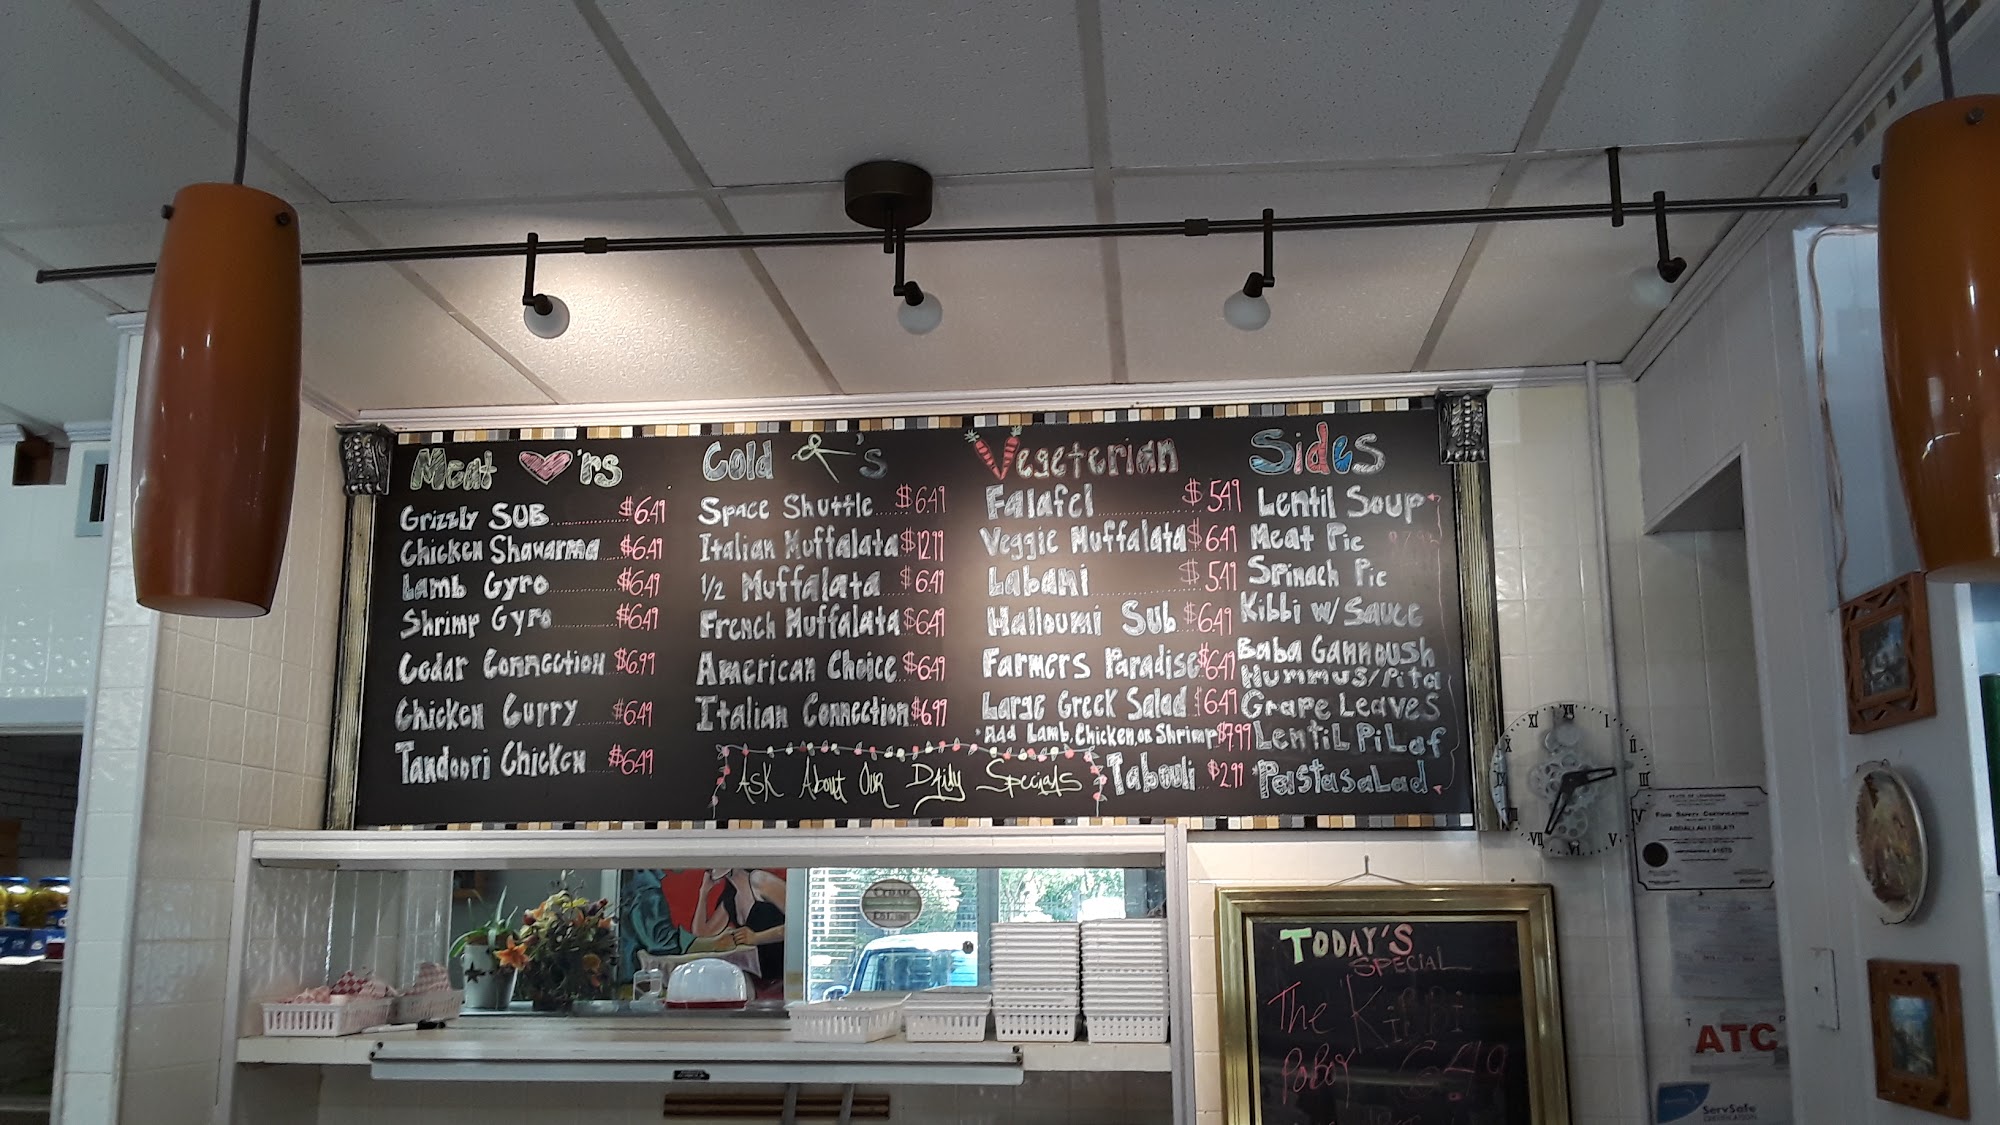 Meat ♥'rs
Grizzly SUB $6.49
Chicken Shawarma $6.49
Lamb Gyro $6.49
Shrimp Gyro $6.49
Cedar Connection $6.99
Chicken Curry $6.49
Tandoori Chicken $6.49
Cold 's
Space Shuttle $6.49
Italian Muffalata $12.99
1/2 Muffalata $6.49
French Muffalata $6.49
American Choice $6.49
Italian Connection $6.99
Ask About Our Daily Specials
Vegeterian
Falafel $5.49
Veggie Muffalata $6.49
Labani $5.49
Halloumi Sub $6.49
Farmers Paradise $6.49
Large Greek Salad $6.49
*Add Lamb, Chicken or Shrimp $7.99
Tabouli $2.99
Sides
Lentil Soup
Meat Pie
Spinach Pie
Kibbi w/ Sauce
Baba Gannoush
Hummus/Pita
Grape Leaves
Lentil Pilaf
*Pasta salad
XI XII I III V VI VII
STATE OF LOUISIANA
FOOD SAFETY CERTIFICATION
TODAY'S
SPECIAL
The Kibbi
PoBoy 6.49
ATC
ServSafe